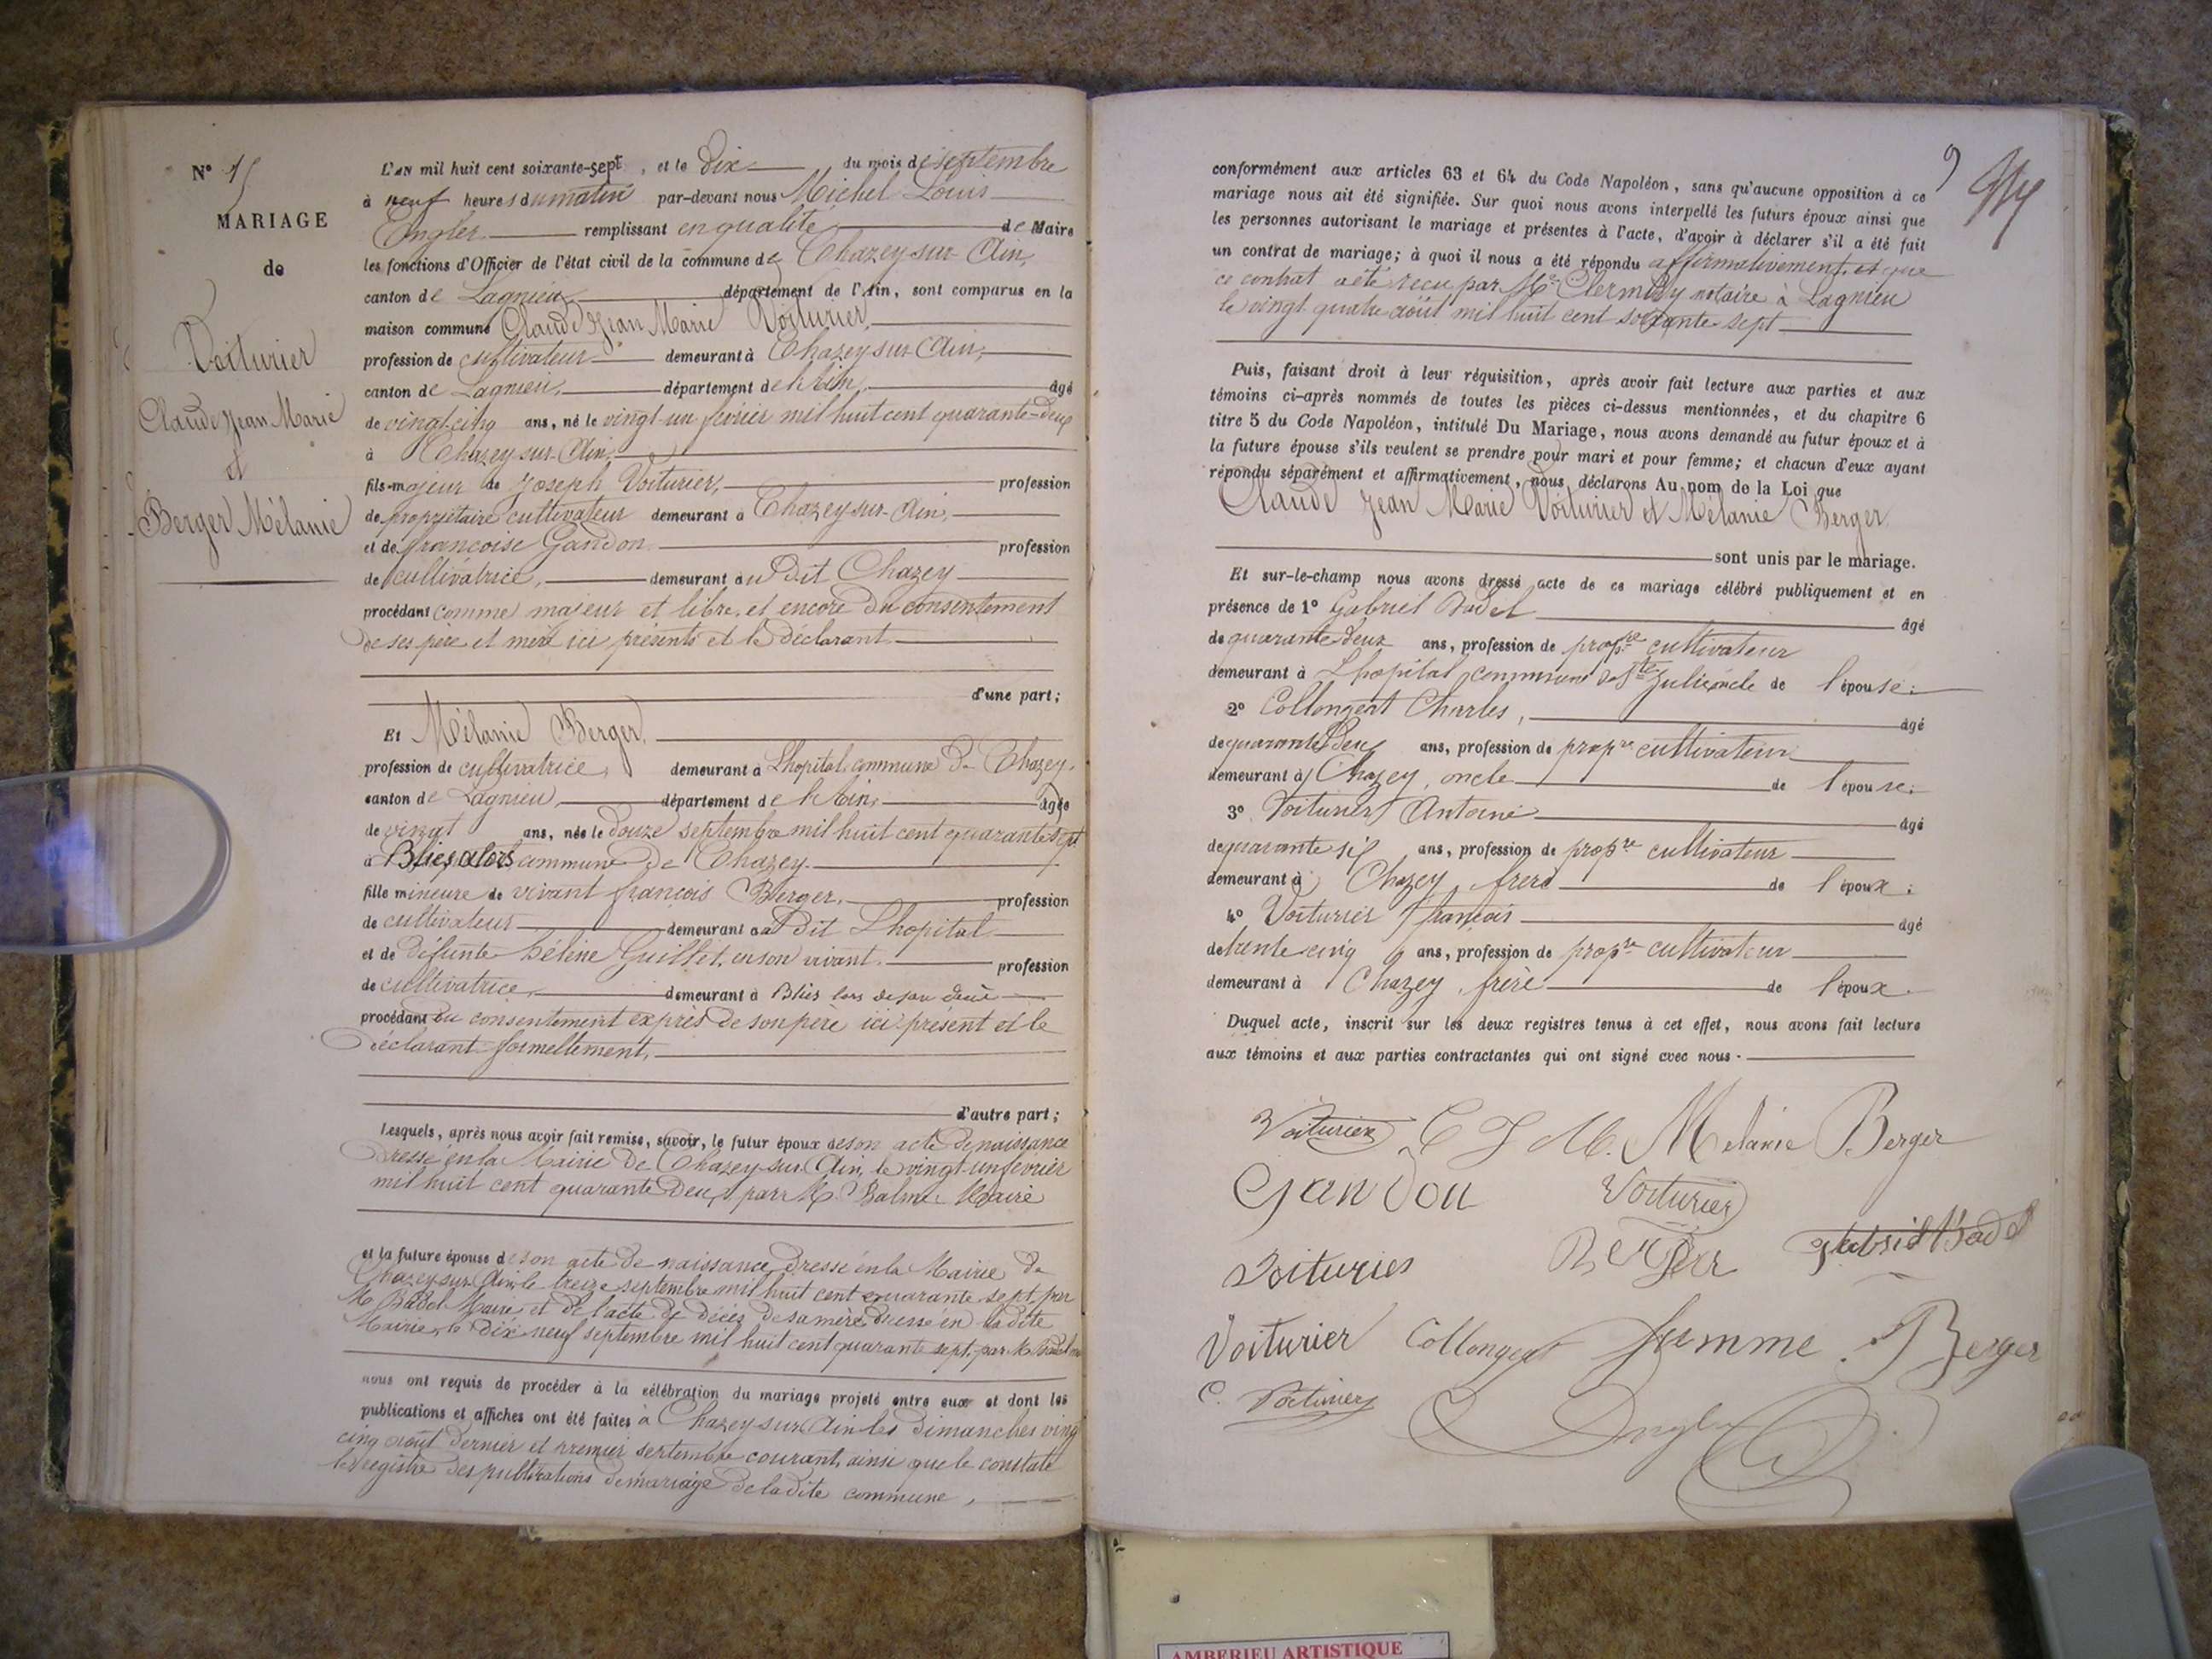 N° 15
MARIAGE
de
Voiturier
Claude Jean Marie
et
Berger Mélanie
L'AN mil huit cent soixante-sept, et le Dix du mois de septembre
à neuf heures du matin par-devant nous Michel Louis
Engler remplissant en qualité de Maire
les fonctions d'Officier de l'état civil de la commune de Chazey-sur-Ain,
canton de Lagnieu, département de l'Ain, sont comparus en la
maison commune Claude Jean Marie Voiturier,
profession de cultivateur demeurant à Chazey-sur-Ain,
canton de Lagnieu, département de l'Ain, âgé
de vingt-cinq ans, né le vingt-un février mil huit cent quarante-deux
à Chazey-sur-Ain,
fils majeur de Joseph Voiturier, profession
de propriétaire cultivateur demeurant à Chazey-sur-Ain,
et de françoise Gandon profession
de cultivatrice, demeurant au Dit Chazey
procédant comme majeur et libre, et encore du consentement
de ses père et mère ici présents et le déclarant.
d'une part;
Et Mélanie Berger,
profession de cultivatrice, demeurant à Lhopital, commune de Chazey,
canton de Lagnieu, département de l'Ain, âgée
de vingt ans, née le douze septembre mil huit cent quarante sept
à Blies alors commune de Chazey.
fille mineure de vivant françois Berger, profession
de cultivateur demeurant au Dit Lhopital
et de défunte hélène Guillet, en son vivant. profession
de cultivatrice, demeurant à Bliès lors de son décès
procédant du consentement exprès de son père ici présent et le
déclarant formellement,
d'autre part;
Lesquels, après nous avoir fait remise, savoir, le futur époux de son acte de naissance
dressé en la Mairie de Chazey-sur-Ain, le vingt-un février
mil huit cent quarante deux, par M. Balme Maire
et la future épouse de son acte de naissance dressé en la Mairie de
Chazey-sur-Ain, le treize septembre mil huit cent quarante sept, par
M. Badel Maire et de l'acte de décès de sa mère dressé en la dite
Mairie, le dix neuf septembre mil huit cent quarante sept, par M. Badel
nous ont requis de procéder à la célébration du mariage projeté entre eux et dont les
publications et affiches ont été faites à Chazey-sur-Ain les dimanches vingt
cinq août dernier et premier septembre courant, ainsi que le constate
le registre des publications de mariage de la dite commune,
conformément aux articles 63 et 64 du Code Napoléon, sans qu'aucune opposition à ce
mariage nous ait été signifiée. Sur quoi nous avons interpellé les futurs époux ainsi que
les personnes autorisant le mariage et présentes à l'acte, d'avoir à déclarer s'il a été fait
un contrat de mariage; à quoi il nous a été répondu affirmativement, et que
ce contrat a été reçu par Me notaire à Lagnieu
le vingt quatre août mil huit cent soixante sept
Puis, faisant droit à leur réquisition, après avoir fait lecture aux parties et aux
témoins ci-après nommés de toutes les pièces ci-dessus mentionnées, et du chapitre 6
titre 5 du Code Napoléon, intitulé Du Mariage, nous avons demandé au futur époux et à
la future épouse s'ils veulent se prendre pour mari et pour femme; et chacun d'eux ayant
répondu séparément et affirmativement, nous déclarons Au nom de la Loi que
Claude Jean Marie Voiturier et Mélanie Berger
sont unis par le mariage.
Et sur-le-champ nous avons dressé acte de ce mariage célébré publiquement et en
présence de 1° Gabriel Badel âgé
de quarante deux ans, profession de propre cultivateur
demeurant à Lhopital, commune de Ste Julie, oncle de l'épouse;
2° Collongeat Charles, âgé
de quarante deux ans, profession de propre cultivateur
demeurant à Chazey, oncle de l'épouse;
3° Voiturier Antoine âgé
de quarante six ans, profession de propre cultivateur
demeurant à Chazey, frère de l'époux;
4° Voiturier françois âgé
de trente cinq ans, profession de propre cultivateur
demeurant à Chazey, frère de l'époux.
Duquel acte, inscrit sur les deux registres tenus à cet effet, nous avons fait lecture
aux témoins et aux parties contractantes qui ont signé avec nous.
Voiturier C J M. Melanie Berger
Gandon Voiturier
Voiturier Berger gabriel Badel
Voiturier Collongeat femme Berger
C. Voiturier Engler
AMBERIEU ARTISTIQUE